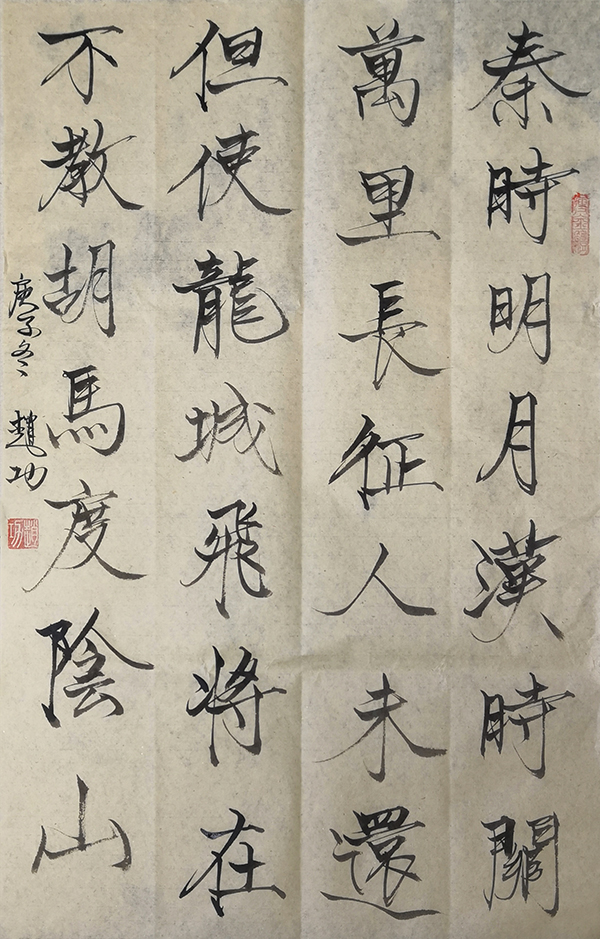 秦時明月漢時關
萬里長征人未還
但使龍城飛將在
不教胡馬度陰山
庚子冬 趙功
趙功